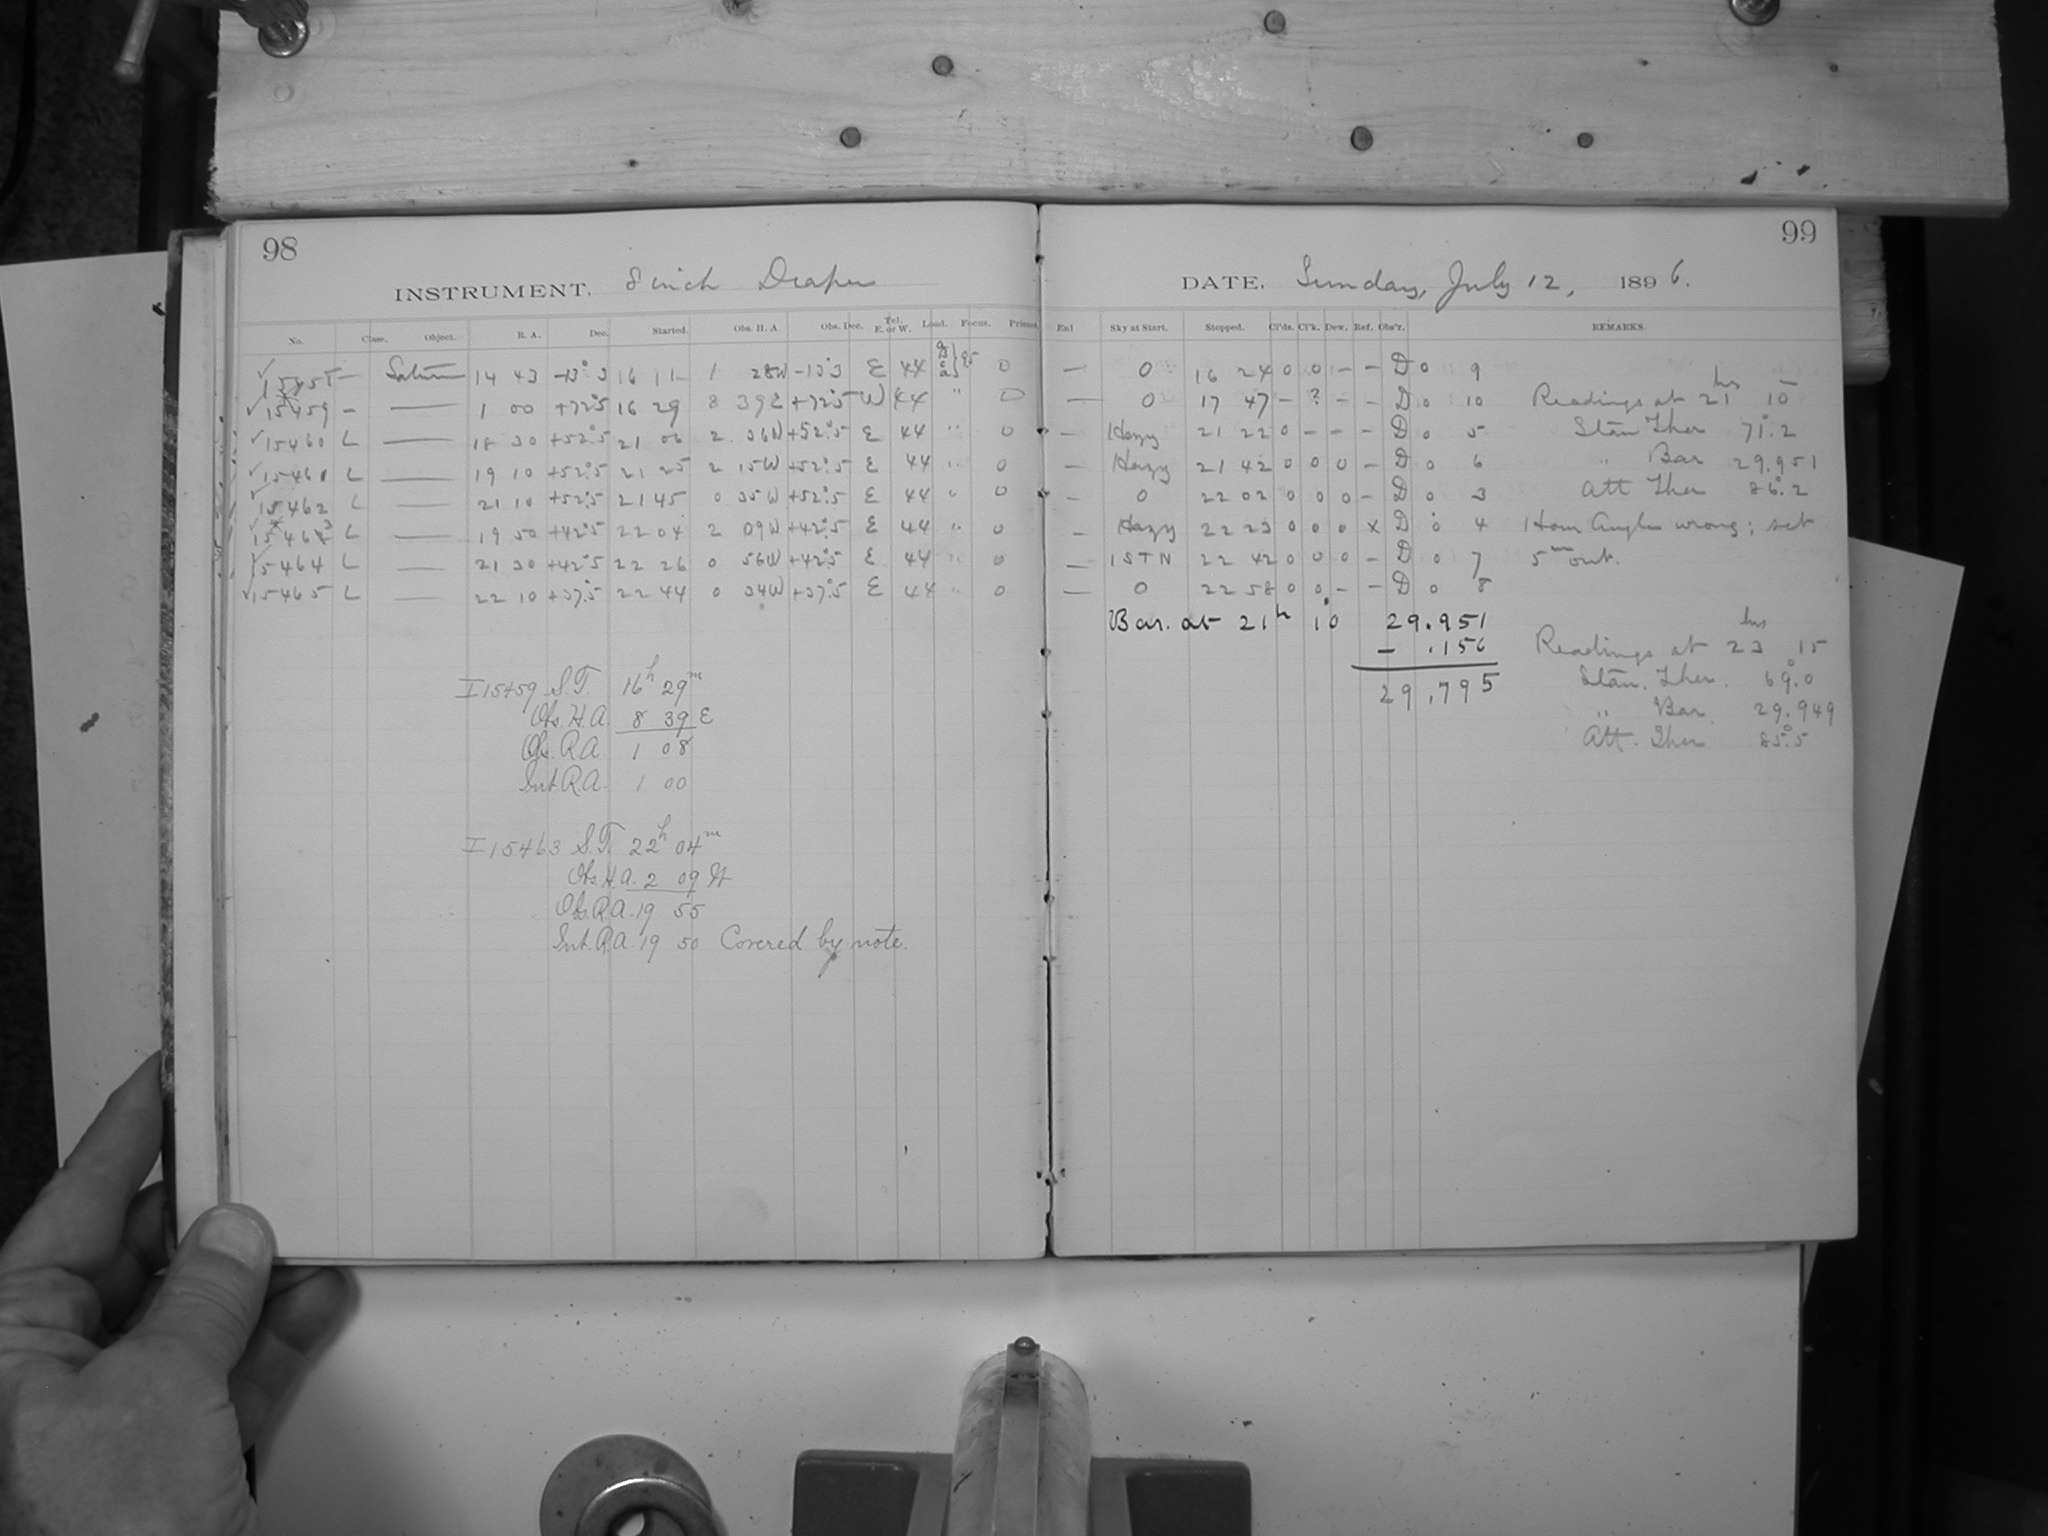 98
INSTRUMENT. 8 inch Draper
No. Class. Object. R. A. Dec. Started. Obs. H. A. Obs. Dec. Tel. E. or W. Load. Focus. Prisms
Saturn 14 43 -13°3 16 11 1 28W -13°3 E 44 95 0
15459 - — 1 00 +72°5 16 29 8 39E +72°5 W 44 " 0
15460 L — 18 30 +52°5 21 06 2 36W +52°5 E 44 " 0
15461 L — 19 10 +52°5 21 25 2 15W +52°5 E 44 " 0
15462 L — 21 10 +52°5 21 45 0 35W +52°5 E 44 " 0
15463 L — 19 50 +42°5 22 04 2 09W +42°5 E 44 " 0
15464 L — 21 30 +42°5 22 26 0 56W +42°5 E 44 " 0
15465 L — 22 10 +37°5 22 44 0 34W +37°5 E 44 " 0
I 15459 S.T. 16h 29m
Obs. H.A. 8 39 E
Obs. R.A. 1 08
Int. R.A. 1 00
I 15463 S.T. 22h 04m
Obs. H.A. 2 09 W
Obs. R.A. 19 55
Int. R.A. 19 50 Covered by note.
99
DATE, Sunday, July 12, 1896.
Enl Sky at Start. Stopped. Cl'ds. Cl'k. Dew. Ref. Obs'r. REMARKS.
— 0 16 24 0 0 - - D 0 9
— 0 17 47 - ? - - D 0 10 Readings at 21 hrs 10
— Hazy 21 22 0 - - - D 0 5 Stan Ther 71°.2
— Hazy 21 42 0 0 0 - D 0 6 " Bar 29.951
— 0 22 02 0 0 0 - D 0 3 Att Ther 86°.2
— Hazy 22 23 0 0 0 x D 0 4 Hour Angle wrong; set
— 1STN 22 42 0 0 0 - D 0 7 5m out.
— 0 22 58 0 0 - - D 0 8
Bar. at 21h 10 29.951
- .156
29.795
Readings at 23 hrs 15
Stan. Ther. 69°.0
" Bar. 29.949
Att. Ther 85°.5